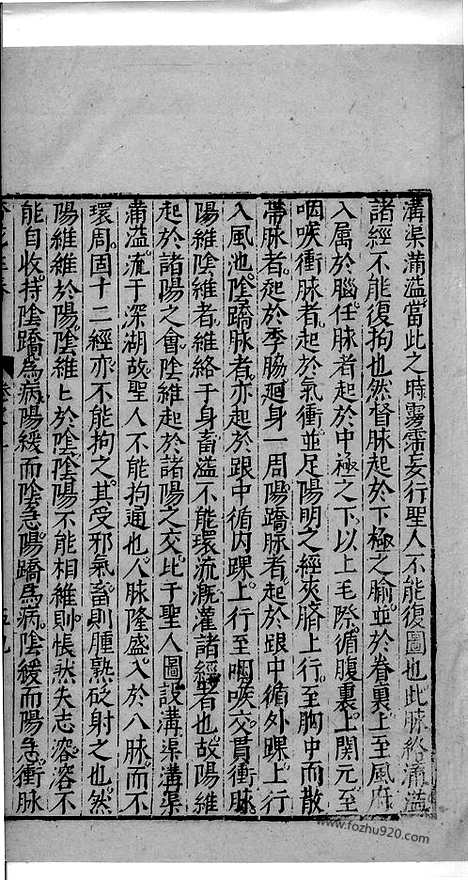 溝渠滿溢當此之時霶霈妄行聖人不能復圖也此脉絡滿溢
諸經不能復拘也然督脉起於下極之腧並於脊裏上至風府
入属於腦任脉者起於中極之下以上毛際循腹裏上關元至
咽喉衝脉者起於氣衝並足陽明之經夾臍上行至胸中而散
帶脉者起於季脇廻身一周陽蹻脉者起於跟中循外踝上行
入風池陰蹻脉者亦起於跟中循内踝上行至咽喉交貫衝脉
陽維陰維者維絡于身畜溢不能環流漑灌諸經者也故陽維
起於諸陽之會陰維起於諸陽之交比于聖人圖設溝渠溝渠
滿溢流于深湖故聖人不能拘通也人脉隆盛入於八脉而不
環周固十二經亦不能拘之其受邪氣畜則腫熟砭射之也然
陽維維於陽陰維上於陰陰陽不能相維則悵然失志溶溶不
能自收持陰蹻爲病陽緩而陰急陽蹻爲病陰緩而陽急衝脉
www.fozhu920.com